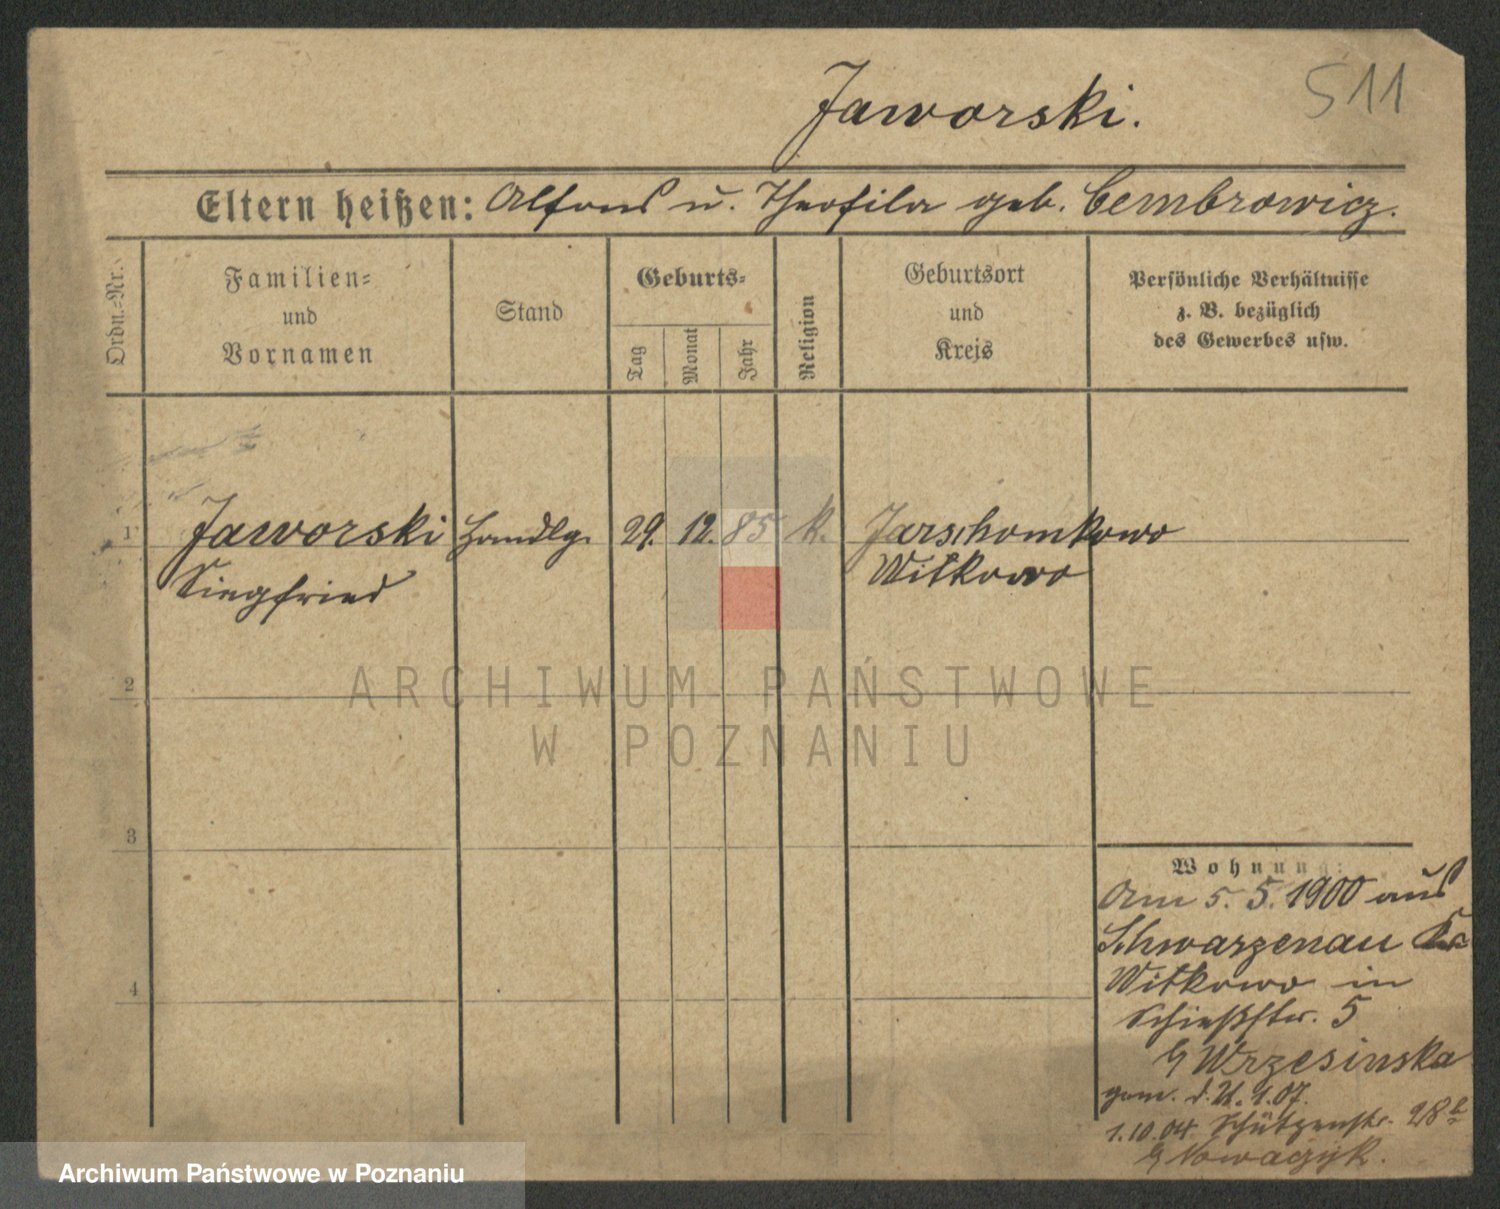 511
Jaworski.
Eltern heißen: Alfons u. Theofila geb. Cembrowicz.
Ordn.-Nr.
Familien-
und
Vornamen
Stand
Geburts-
Tag
Monat
Jahr
Religion
Geburtsort
und
Kreis
Persönliche Verhältnisse
z. B. bezüglich
des Gewerbes usw.
1 Jaworski Handlg. 29. 12. 85 k. Jarschomkowo
Siegfried Witkowo
2
3
4
ARCHIWUM PAŃSTWOWE
W POZNANIU
Wohnung:
Am 5. 5. 1900 aus
Schwarzenau Kr
Witkowo in
Schießstr. 5
Wrzesinska
gem. d. 1.07.
1.10.04 Schützenstr. 28
Nowaczyk.
Archiwum Państwowe w Poznaniu